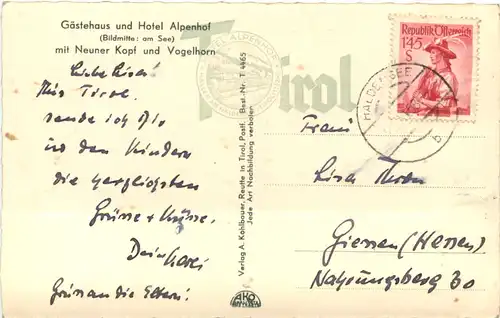 Gästehaus und Hotel Alpenhof
(Bildmitte: am See)
mit Neuner Kopf und Vogelhorn
Liebe Lisa!
Aus Tirol
sende ich Dir
und den Kindern
die herzlichsten
Grüsse + Küsse.
Dein
Grüss an die Eltern!
Verlag A. Kohlbauer, Reutte in Tirol, Postf. Best.-Nr. T 4465
Jede Art Nachbildung verboten
ALPENHOF
Tirol
Republik Österreich
1.45
S
HALDENSEE
b
Frau
Lisa
Giessen (Hessen)
Nahrungsberg 30
AKO